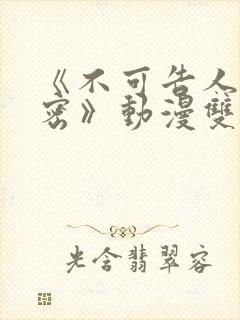 《不可告人
密》動漫雙
光含翡翠容